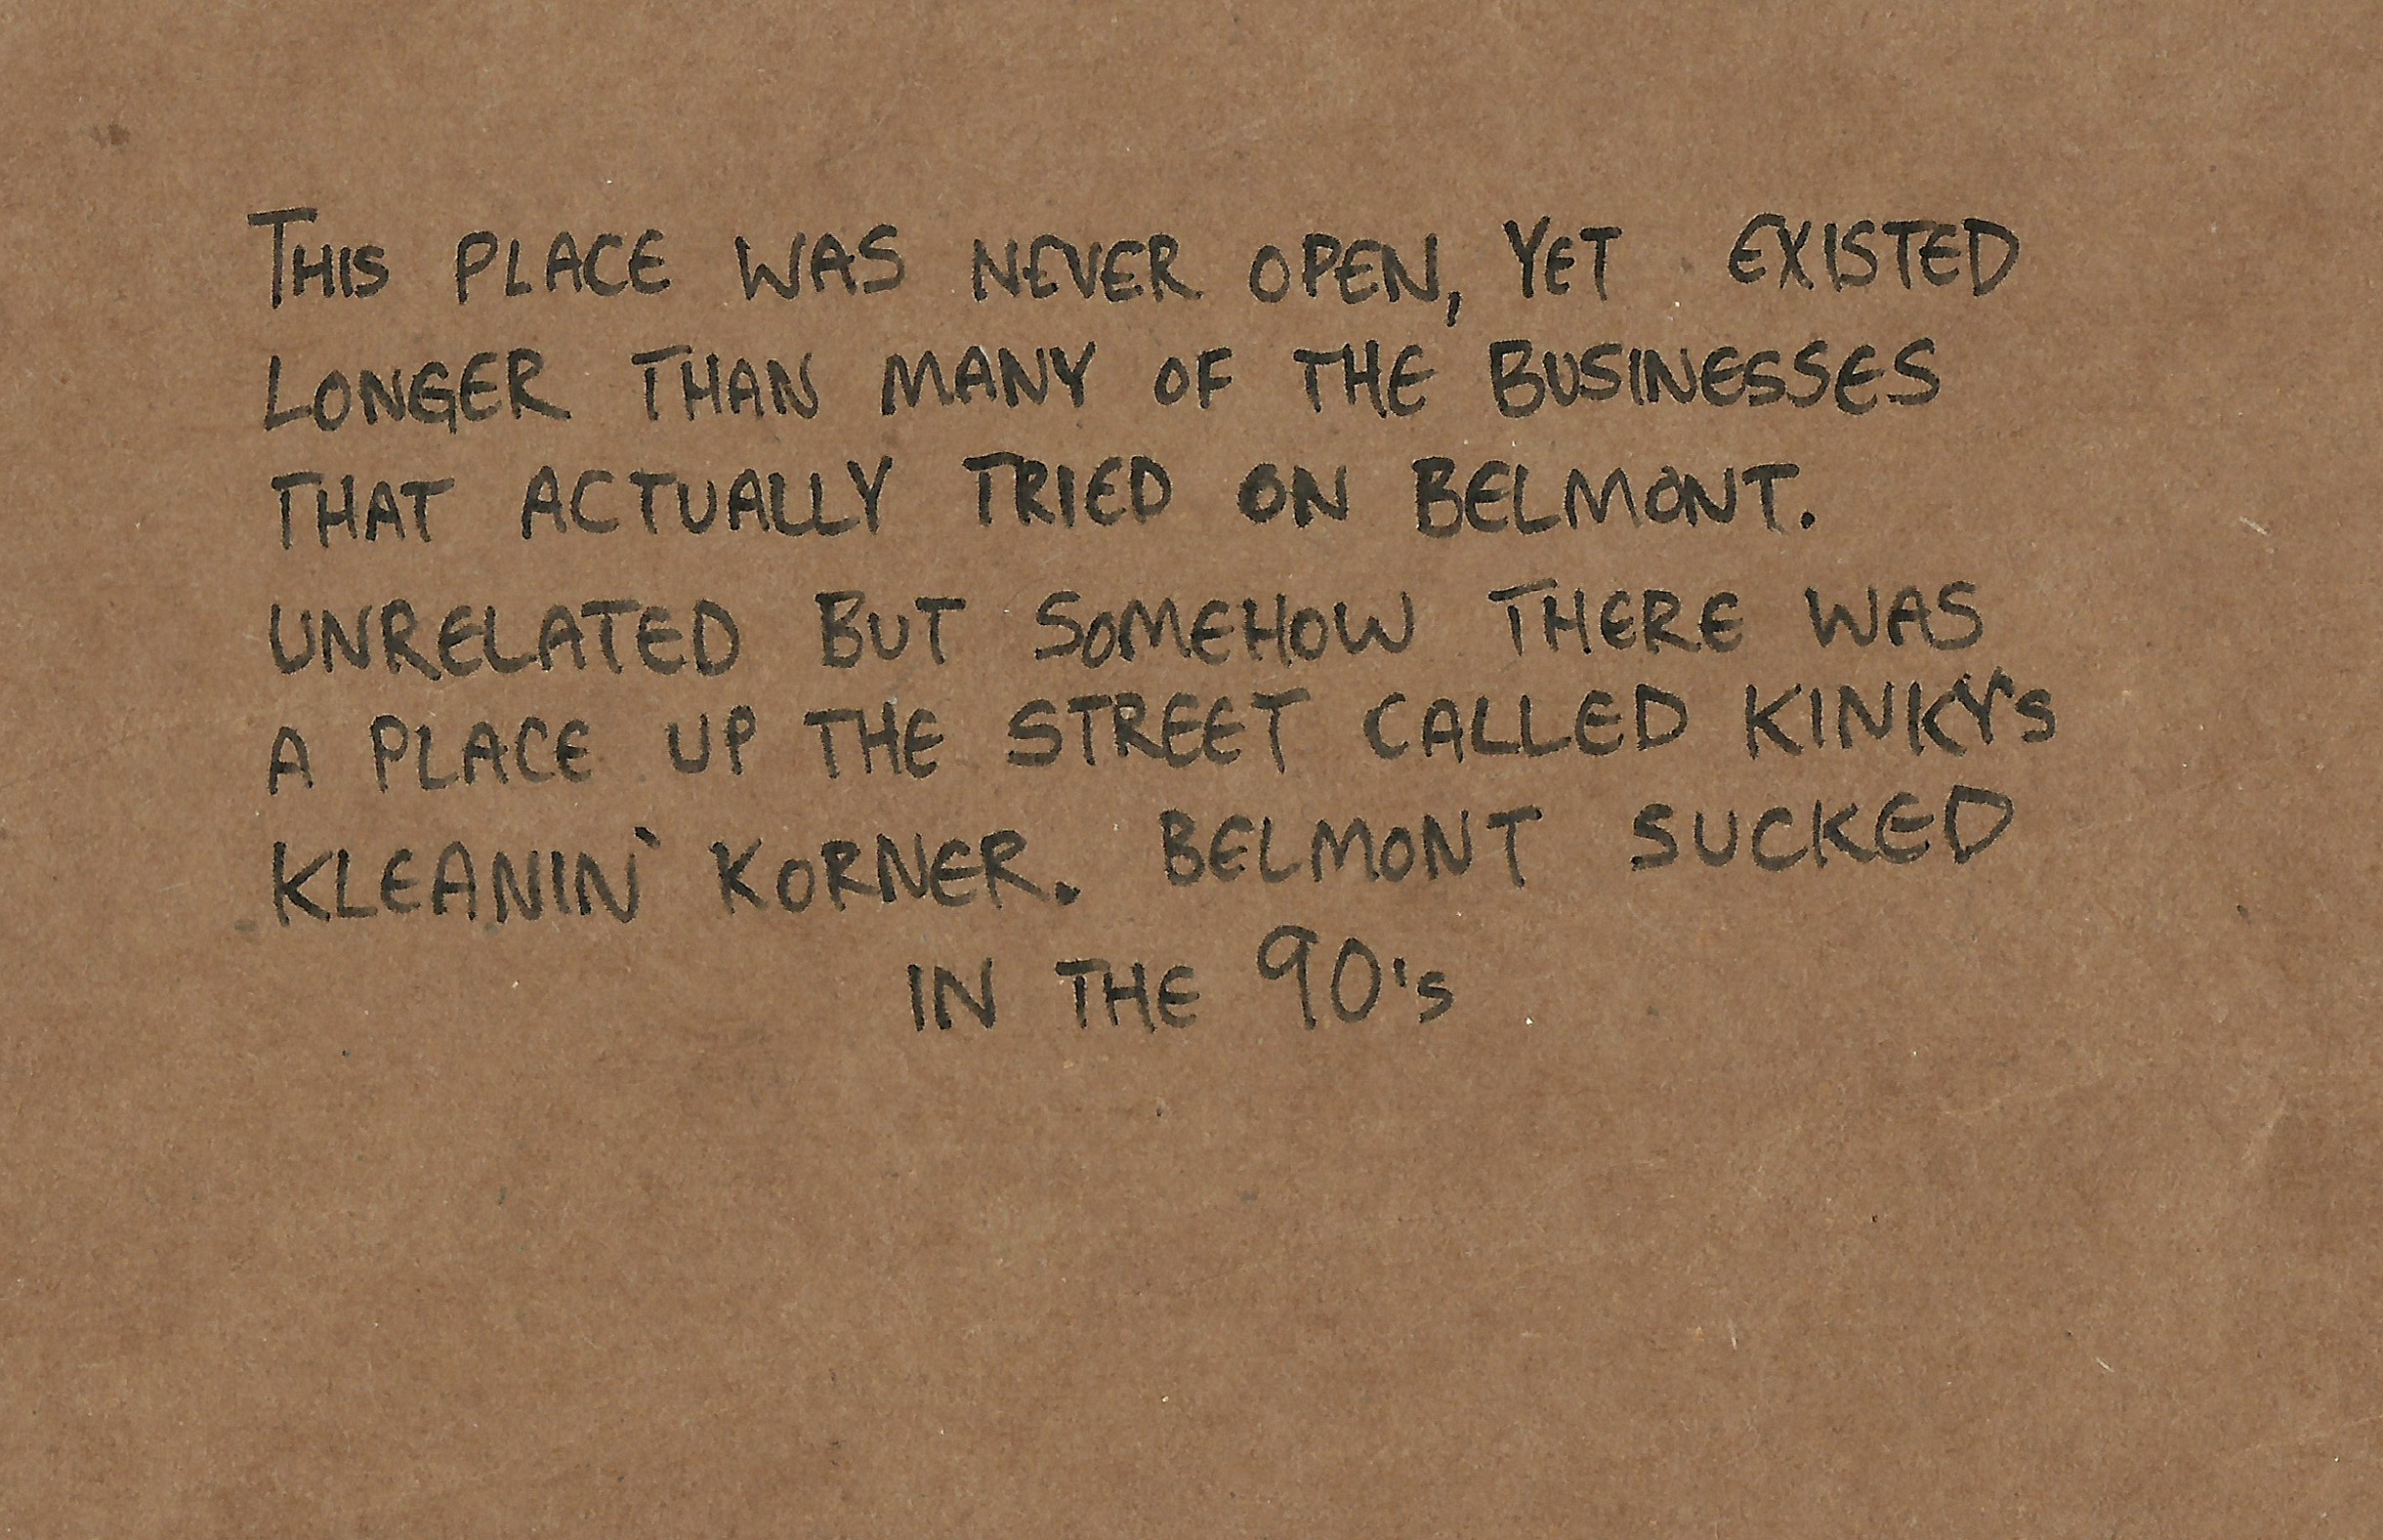 THIS PLACE WAS NEVER OPEN, YET EXISTED
LONGER THAN MANY OF THE BUSINESSES
THAT ACTUALLY TRIED ON BELMONT.
UNRELATED BUT SOMEHOW THERE WAS
A PLACE UP THE STREET CALLED KINKY'S
KLEANIN' KORNER. BELMONT SUCKED
IN THE 90's